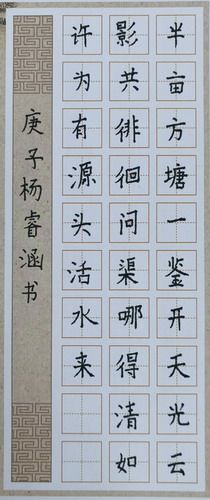 半亩方塘一鉴开天光云
影共徘徊问渠哪得清如
许为有源头活水来
庚子杨睿涵书